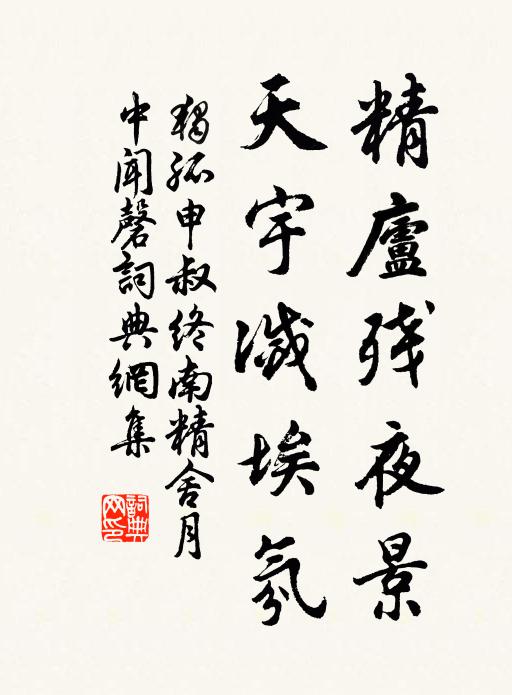 精廬殘夜景
天宇滅埃氛
獨孤申叔終南精舍月
中聞磬詞典網集
詞典
网印